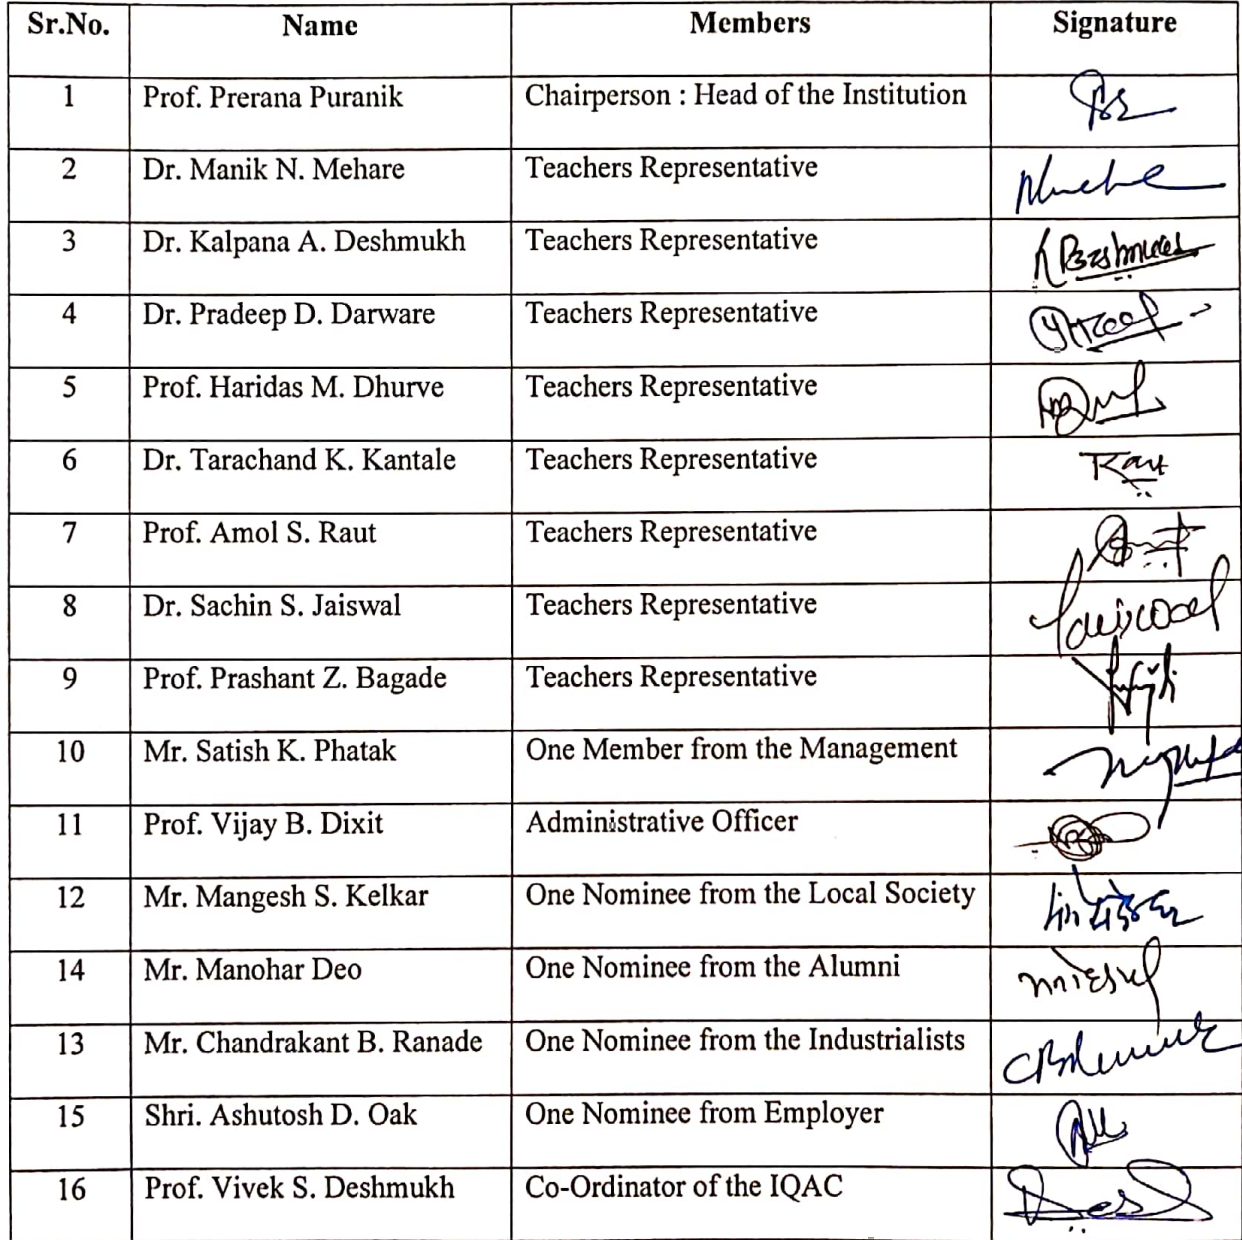 Sr.No. Name Members Signature
1 Prof. Prerana Puranik Chairperson : Head of the Institution
2 Dr. Manik N. Mehare Teachers Representative
3 Dr. Kalpana A. Deshmukh Teachers Representative
4 Dr. Pradeep D. Darware Teachers Representative
5 Prof. Haridas M. Dhurve Teachers Representative
6 Dr. Tarachand K. Kantale Teachers Representative
7 Prof. Amol S. Raut Teachers Representative
8 Dr. Sachin S. Jaiswal Teachers Representative Jaiswal
9 Prof. Prashant Z. Bagade Teachers Representative
10 Mr. Satish K. Phatak One Member from the Management
11 Prof. Vijay B. Dixit Administrative Officer
12 Mr. Mangesh S. Kelkar One Nominee from the Local Society
14 Mr. Manohar Deo One Nominee from the Alumni
13 Mr. Chandrakant B. Ranade One Nominee from the Industrialists
15 Shri. Ashutosh D. Oak One Nominee from Employer
16 Prof. Vivek S. Deshmukh Co-Ordinator of the IQAC